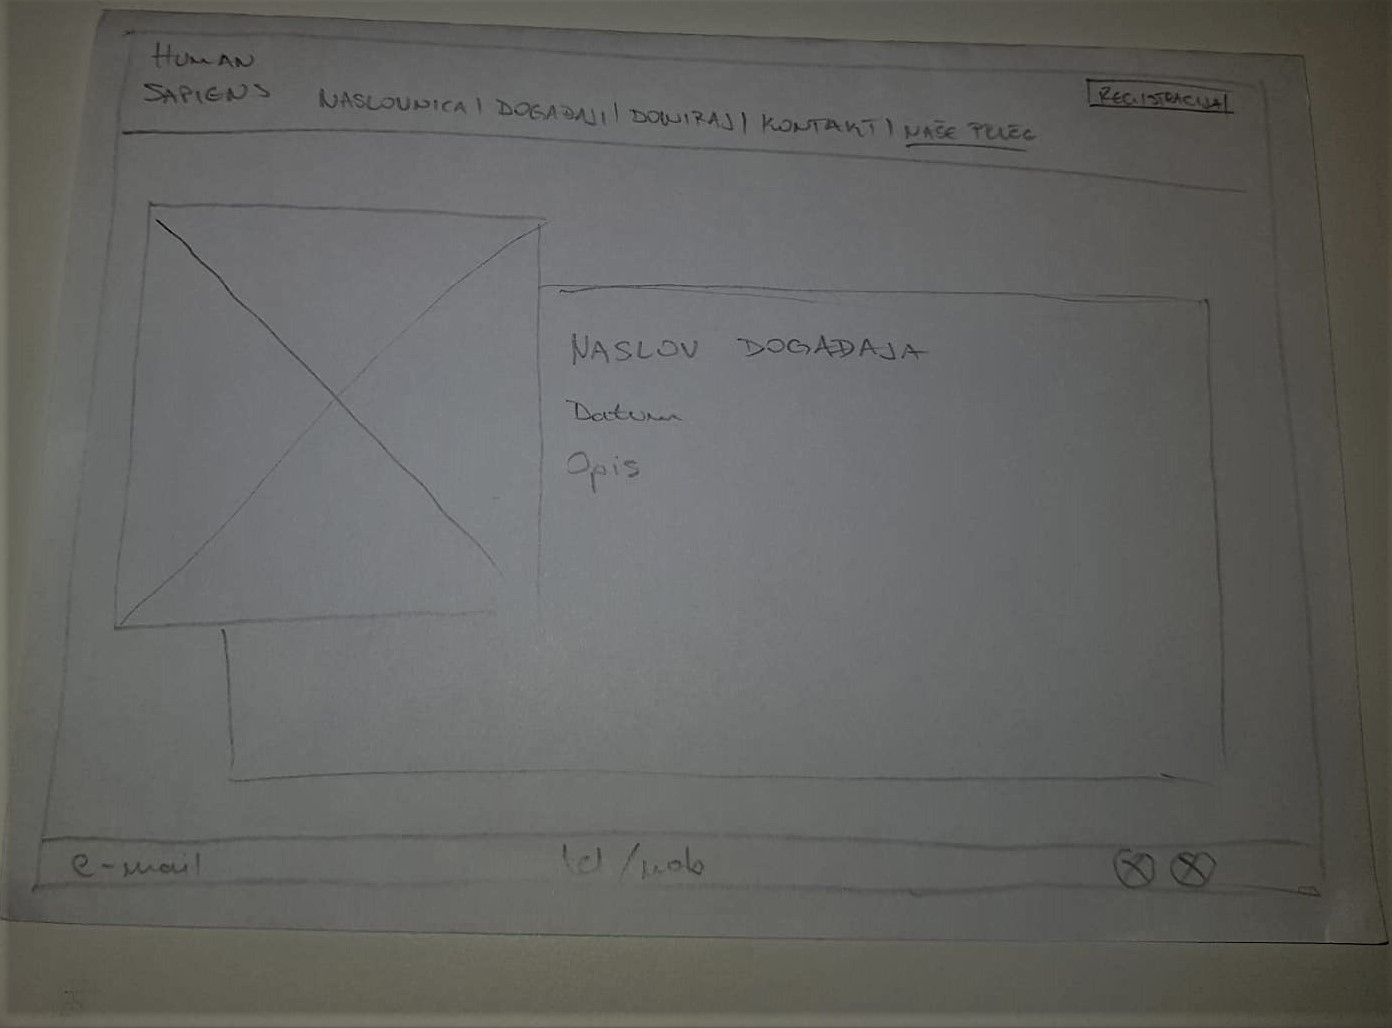 HUMAN
SAPIENS
NASLOVNICA | DOGAĐAJI | DONIRAJ | KONTAKT | NAŠE PRIČE
REGISTRACIJA
NASLOV DOGAĐAJA
Datum
Opis
e-mail
tel/mob